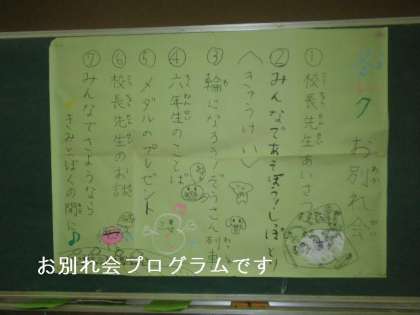 お別れ会
わか かい
①校長先生あいさつ
②みんなであそぼう？しっぽとり
＜きゅうけい＞
③輪になろう、ぞうさん列車
④六年生のことば
⑤メダルのプレゼント
⑥校長先生のお話
⑦みんなでさようなら
きみとぼくの間に♪
お別れ会プログラムです